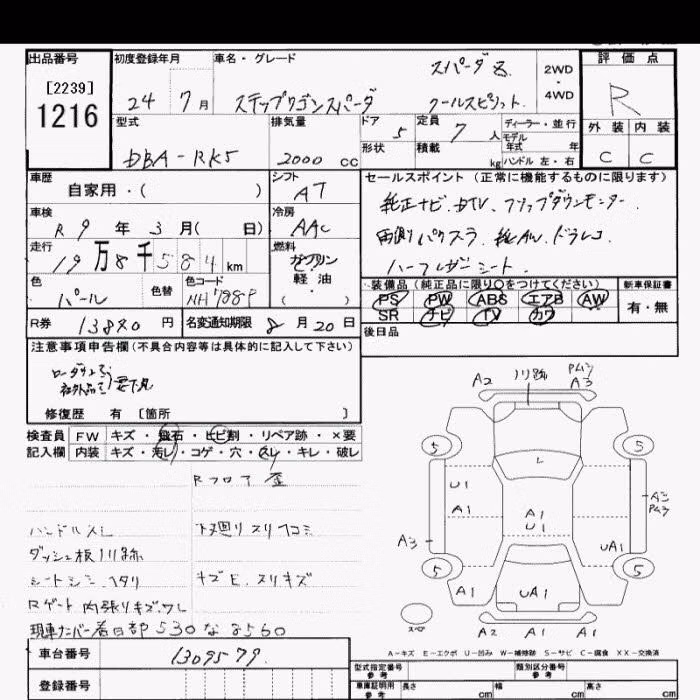 出品番号 初度登録年月 車名・グレード スパーダZ 2WD・4WD 評価点
[2239]
1216 24 7月 ステップワゴンスパーダ クールスピリット R
型式 排気量 ドア 5 定員 7人 ディーラー・並行 外装 内装
DBA-RK5 2000 cc 形状 積載 kg モデル年式 年 ハンドル 左・右 C C
車歴 自家用・( ) シフト AT セールスポイント (正常に機能するものに限ります)
車検 R9年3月( 日) 冷房 AAC 純正ナビ.DTV.フリップダウンモニター.
走行 19万8千584km 燃料 ガソリン 軽油 ( ) 両側パワスラ.純AW.ドラレコ
ハーフレザーシート.
色 パール 色替 色コード NH788P 装備品 (純正品に限り○をつけてください) 新車保証書
PS PW ABS エアB AW 有・無
SR ナビ TV カワ
R券 13820円 名変通知期限 8月20日 後日品
注意事項申告欄(不具合内容等は具体的に記入して下さい)
社外品 要下見
修復歴 有 [箇所 ]
検査員記入欄 FW キズ・飛石・ヒビ割・リペア跡・×要
内装 キズ・汚レ・コゲ・穴・スレ・キレ・破レ
Rフロア 歪
ハンドルスレ 下廻りスリ凹ミ
ダッシュ板ノリ跡
シートシミ.ヘタリ キズE.スリキズ
Rゲート内張りキズ.ワレ
現車ナンバー 春日部530な8560
車台番号 1309579.
登録番号
A2 ノリ跡 PムラA3
5 5
L
U1
A1 A1 U1 A3 Pムラ
A3 UA1
5 5
A1 UA1 A1
スペア A2 A1 A1
A-キズ E-エクボ U-凹み W-補修跡 S-サビ C-腐食 XX-交換済
型式指定番号 参考 類別区分番号 参考
車庫証明用 参考 長さ cm 幅 cm 高さ cm